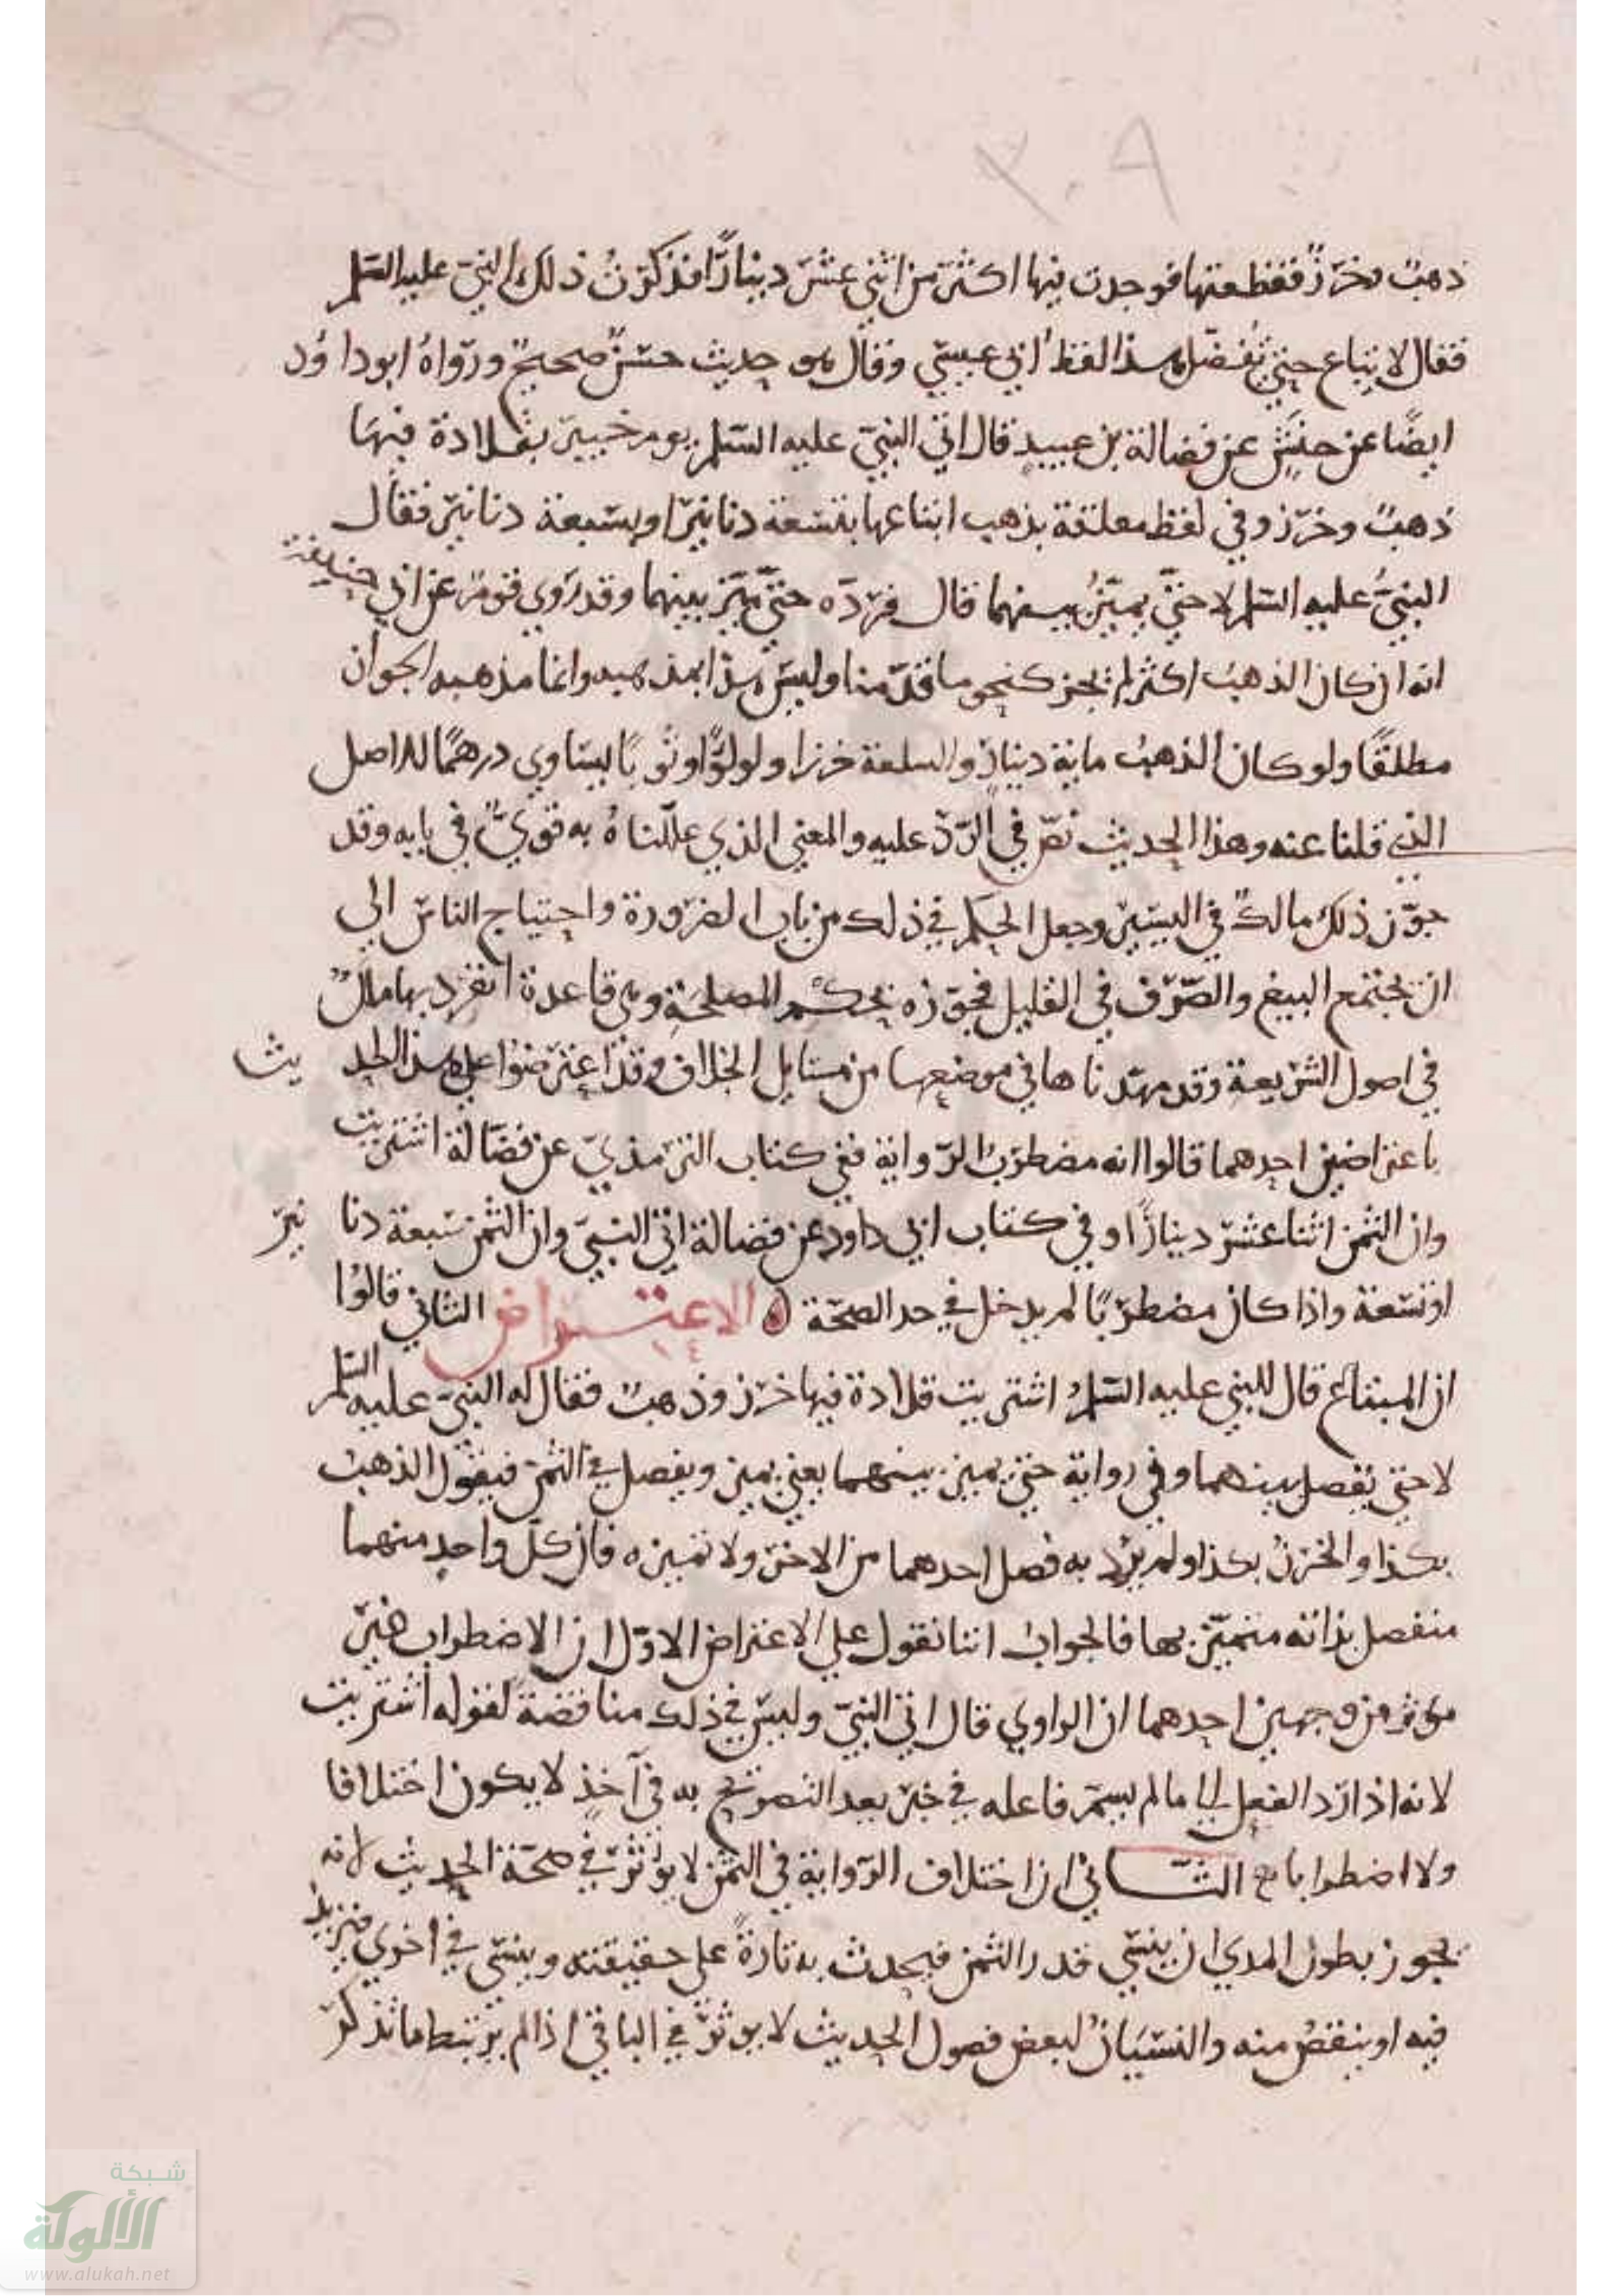 ٢٠٩
ذهبٌ وخرَزٌ ففظعتها فوجدت فيها اكثرَ من اثني عشرَ دينارًا فذكرتُ ذلك النبيّ عليه السّلم
فقال لا تباع حتي تُفصّل هذا لفظ ابي عيسي وقال هو حديث حسنٌ صحيحٌ وروَاهُ ابو داوُد
ايضًا عن حنَشٍ عن فضالة بن عبيدٍ قال اتي النبيّ عليه السّلم يوم خيبرَ بقلادة فيهَا
ذهبٌ وخرَز وفي لفظ معلقة بذهب ابتاعها بتسْعة دنانيرَ او بسَبعة دنانير فقال
النبيُّ عليه السّلم لا حتّي يميّزُ بينهما قال فردّه حتّي ميّز بينهما وقد رَوي قومٌ عن ابي حنيفة
انه ان كان الذهبُ اكثر لم يجز كنحو ما قدّمنا وليسَ هذا بمذهبه وانما مذهبه الجواز
مطلقًا ولو كان الذهبُ ماية دينارٍ والسلعة خرزا او لولوًا او ثوبًا يسَاوي درهمًا للاصل
الذي قلنا عنه وهذا الحديث نصّ في الرّدّ عليه والمعني الذي عللّناهُ به قويٌّ في بابه وقد
جوّز ذلك مالكٌ في اليسير وجعل الحكم في ذلك من باب الضرورة واحتياج الناسِ الي
ان يجتمع البيع والصّرْف في القليل فجوّزه بحكم المصلحَةِ وهي قاعدة انفرد بها مالكٌ
في اصول الشريعة وقد مهّدناها في موضعها من مسَايل الخلاف وقد اعترضوُا علي هذا الحديث
باعتراضين احدهما قالوا انه مضطرَبُ الرّواية ففي كتاب الترمذيّ عن فضَالة اشتريت
وان الثمن اثنا عشرَ دينارًا وفي كتاب ابي داود عن فضالة اتي النبيّ وان الثمن سَبعة دنانيرَ
او تسْعة واذا كان مضطربًا لم يدخل في حد الصحّة ۞ الاعتراض الثاني قالوُا
ان المبتاع قال للنبي عليه السّلمُ اشتريت قلادة فيها خرَز وذهبٌ فقال له النبيّ عليه السّلم
لا حتي يُفصل بينهما وفي رواية حتي يميز بينهما يعني يميز ويفصل في الثمن فيقول الذهبُ
بكذا والخرزُ بكذا ولم يرد به فصل احدهما من الاخر ولا تميزه فان كلّ واحدٍ منهما
منفصل بذاته متميّز بها فالجوابُ اننا نقول علي الاعتراض الاوّل ان الاضطراب غير
مؤثر من وجهين احدهما ان الراوي قال اتي النبيّ وليسَ في ذلك مناقضةً لقوله اشتريت
لانه اذا رَد الفعل الي ما لم يسمّ فاعله في خبر بعد التصرِيح به في آخرٍ لا يكون اختلافا
ولا اضطرابا الثّاني ان اختلاف الرّواية في الثمن لا يؤثرُ في صحّة الحديث لانه
يجوز بطول المدي ان ينسَي قدر الثمن فيحدث به تارةً علي حقيقته وينسَي في اخري فيزيد
فيه او ينقصُ منه والنسْيَانُ لبعض فصول الحديث لا يؤثرُ في الباقي اذا لم يرتبط ما تذكرَ
شبكة
الألوكة
www.alukah.net